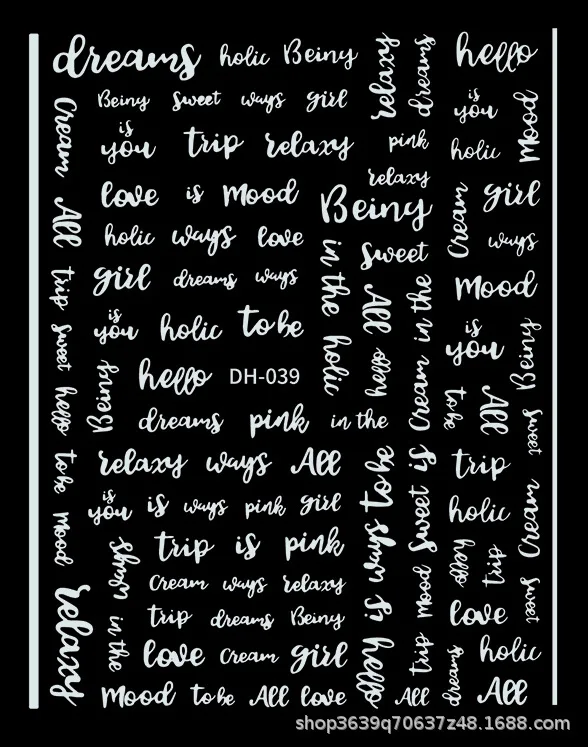 dreams holic Beiny relaxy dreams hello
Beiny Sweet ways girl is you Mood
Cream is you trip relaxy pink holic
relaxy
All love is Mood Beiny Cream girl
holic ways love in the Sweet ways
trip girl dreams ways All Cream in the Mood
sweet is you holic to be holic hello is you Beiny
hello Beiny hello DH-039 to be All Sweet
dreams pink in the
to be relaxy ways All to be is trip
mood is you is ways pink girl ways Sweet holic Cream
ways trip is pink is Mood hello trip
relaxy Cream ways relaxy love Sweet
in the trip dreams Beiny hello trip
love Cream girl dreams holic
Mood to be All love All All
shop3639q70637z48.1688.com